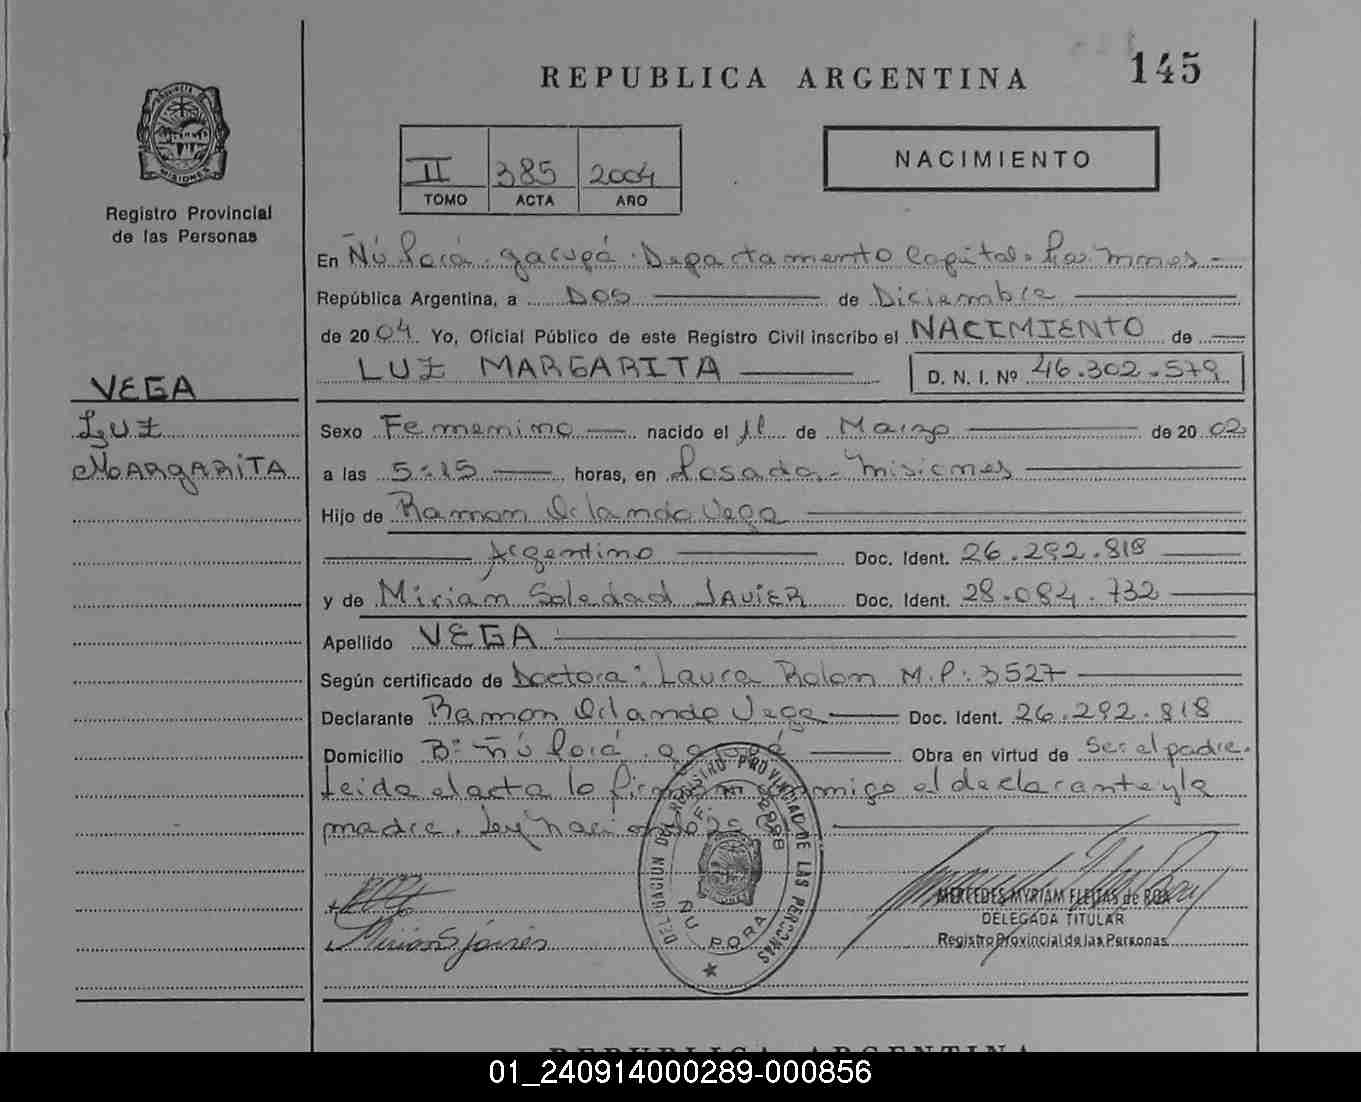 145
REPUBLICA ARGENTINA
NACIMIENTO
II 385 2004
TOMO ACTA AÑO
PROVINCIA DE
MISIONES
Registro Provincial
de las Personas
En Ñú Porá. garupá. Departamento Capital. Misiones -
República Argentina, a DOS de Diciembre
de 2004. Yo, Oficial Público de este Registro Civil inscribo el NACIMIENTO de
LUZ MARGARITA D. N. I. Nº 46.302.579
VEGA
LUZ
MARGARITA
Sexo Femenino nacido el 11 de Marzo de 2002
a las 5:15 horas, en Posadas - Misiones
Hijo de Ramon Orlando Vega
Argentino Doc. Ident. 26.292.818
y de Miriam Soledad JAVIER Doc. Ident. 28.084.732
Apellido VEGA
Según certificado de Doctora: Laura Rolon M.P: 3527
Declarante Ramon Orlando Vega Doc. Ident. 26.292.818
Domicilio Bº Ñú Porá. garupá Obra en virtud de ser el padre.
Leida el acta la firman conmigo el declarante y la
madre. Ley
DELEGACION DEL REGISTRO PROVINCIAL DE LAS PERSONAS
ÑU PORA
Miriam S javier
MERCEDES MYRIAM FLEITAS de ROA
DELEGADA TITULAR
Registro Provincial de las Personas
REPUBLICA ARGENTINA
01_240914000289-000856